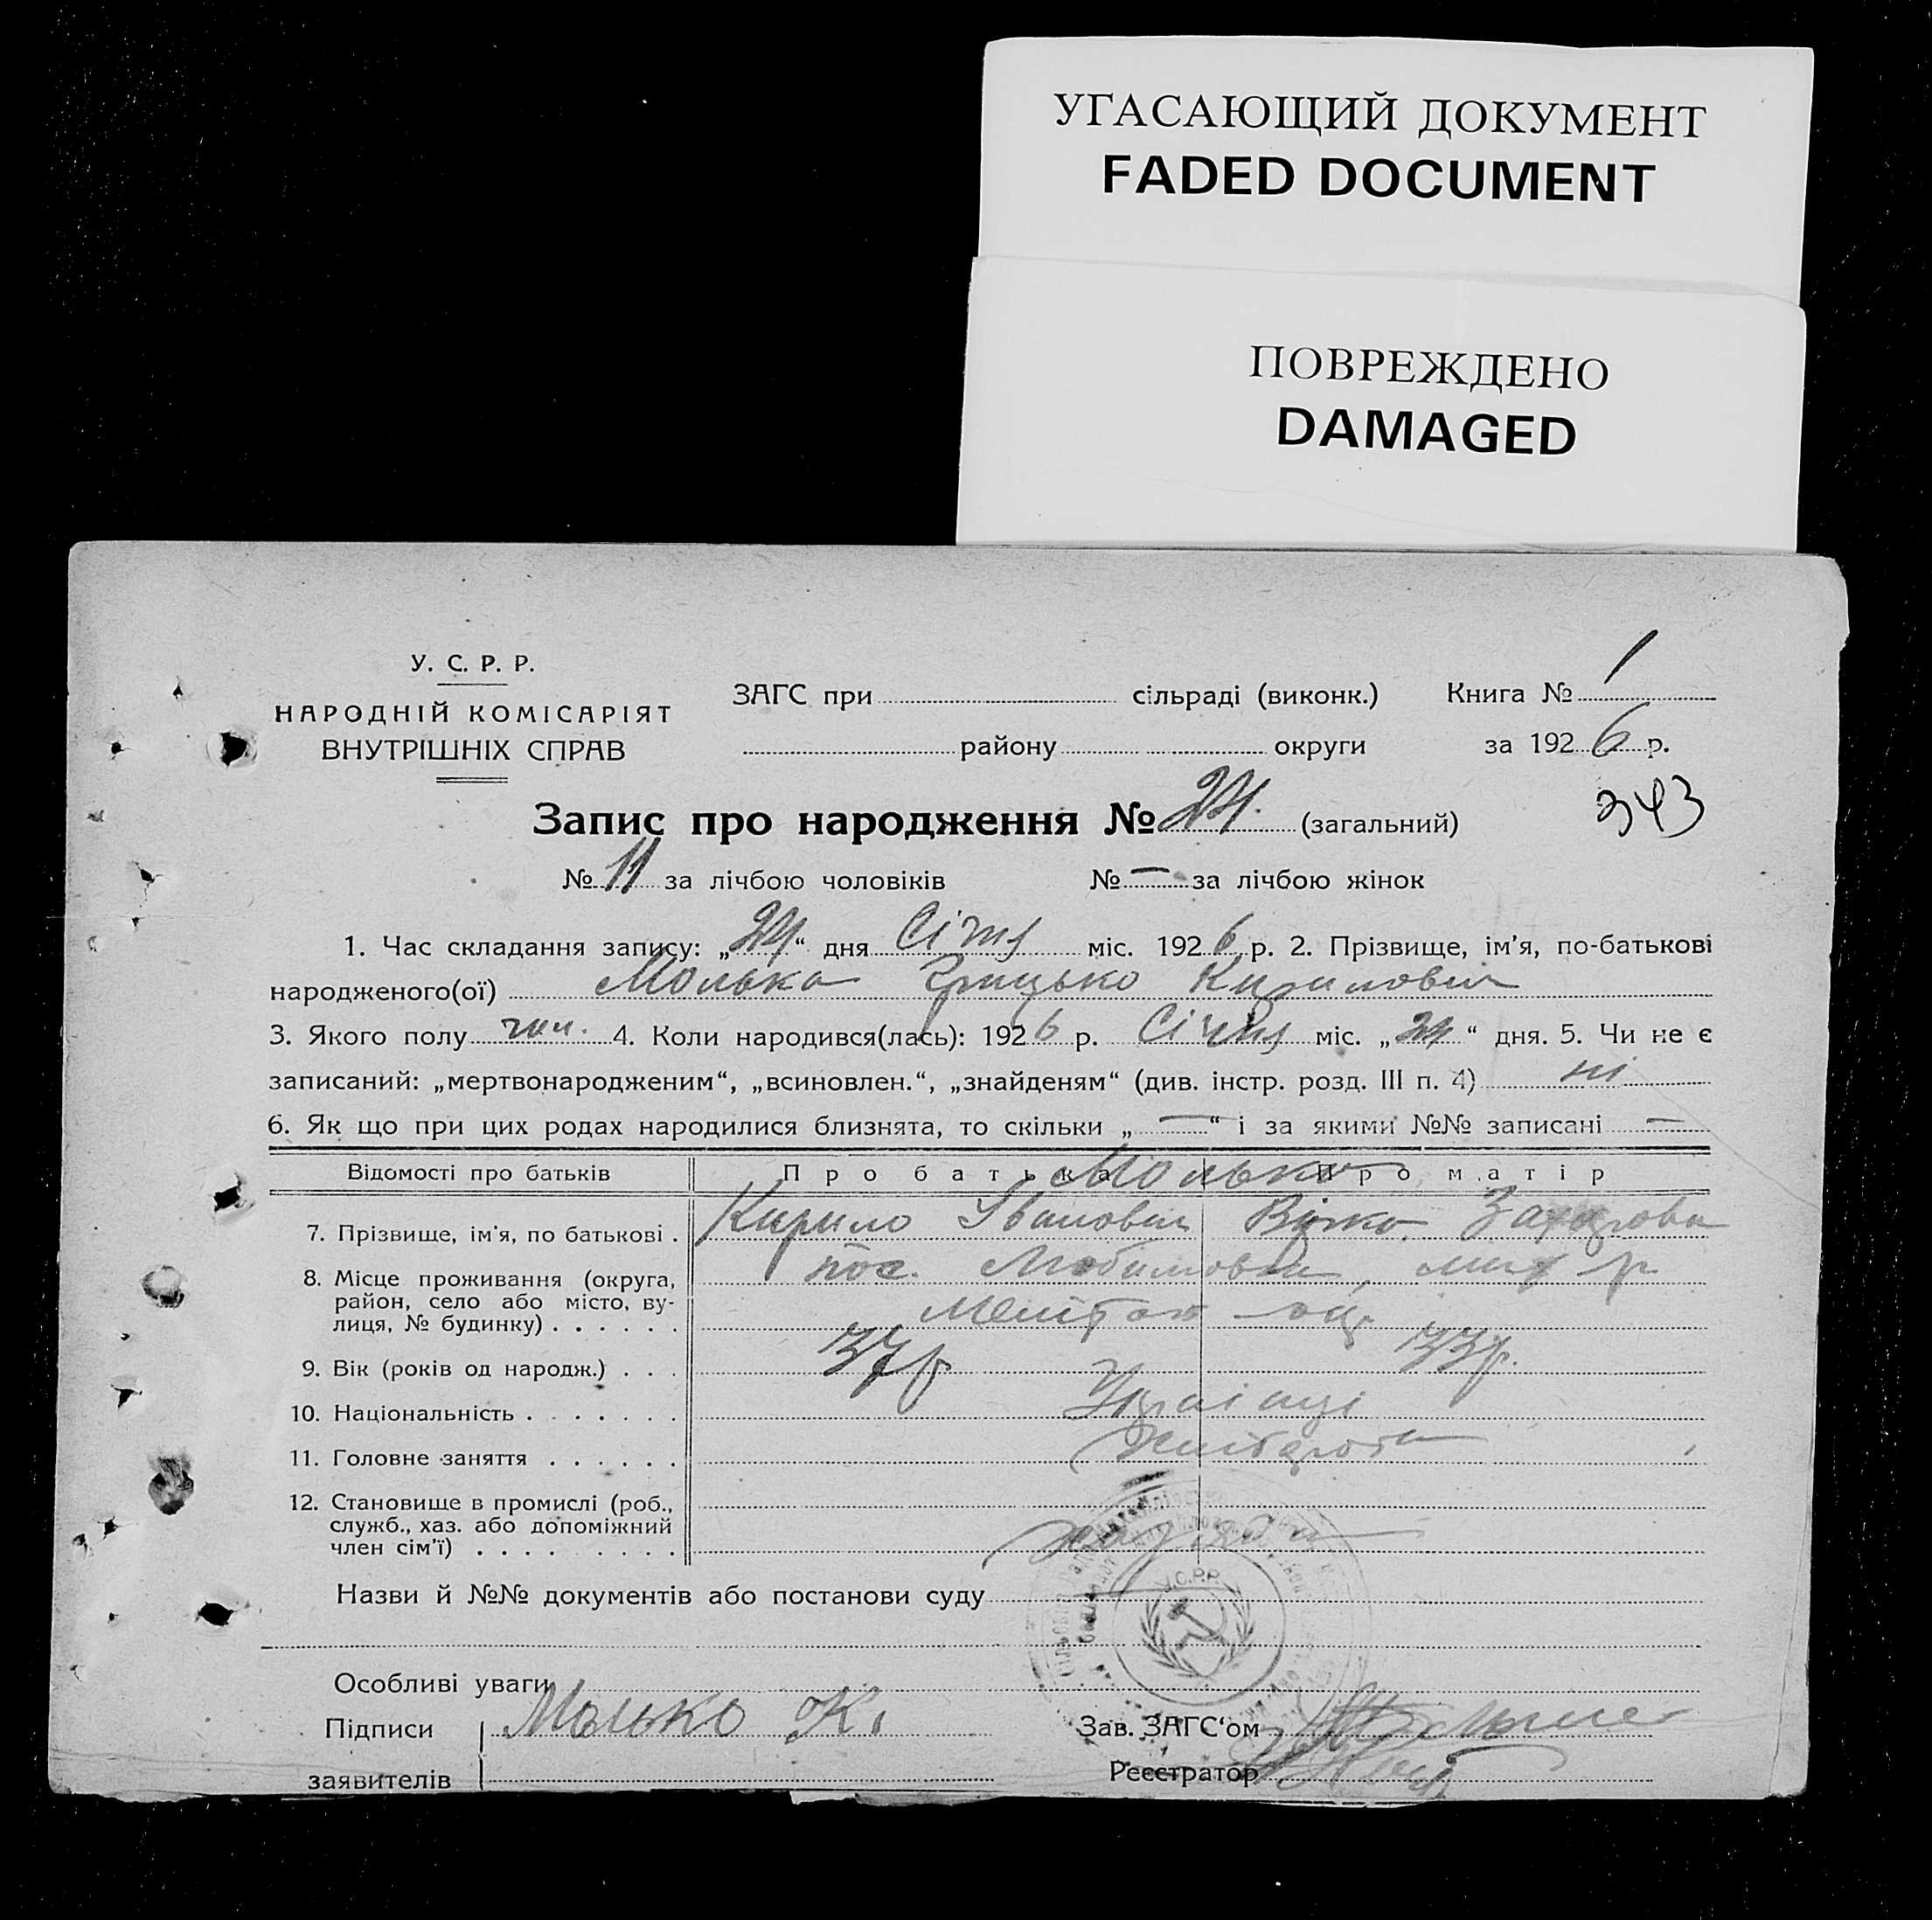 УГАСАЮЩИЙ ДОКУМЕНТ
FADED DOCUMENT
ПОВРЕЖДЕНО
DAMAGED
У. С. Р. Р.
НАРОДНІЙ КОМІСАРІЯТ
ВНУТРІШНІХ СПРАВ
ЗАГС при сільраді (виконк.) Книга № 1
району округи за 1926 р.
343
Запис про народження № 24. (загальний)
№ 11 за лічбою чоловіків № — за лічбою жінок
1. Час складання запису: „24“ дня Січня міс. 1926 р. 2. Прізвище, ім'я, по-батькові
народженого(ої) Молька Грицько Кирилович
3. Якого полу чол. 4. Коли народився(лась): 1926 р. Січня міс. „24“ дня. 5. Чи не є
записаний: „мертвонародженим“, „всиновлен.“, „знайденям“ (див. інстр. розд. III п. 4) ні
6. Як що при цих родах народилися близнята, то скільки „—“ і за якими №№ записані —
Відомості про батьків Про батька Про матір
Молько
7. Прізвище, ім'я, по батькові . Кирило Іванович Захарова
8. Місце проживання (округа, пос. Любимовка,
район, село або місто, ву-
лиця, № будинку) . . . . . .
9. Вік (років од народж.) . . . 37 р 33 р.
10. Національність . . . . . . . Українці
11. Головне заняття . . . . . . Хліборобы
12. Становище в промислі (роб.,
служб., хаз. або допоміжний
член сім'ї) . . . . . . . . .
У.С.Р.Р.
Назви й №№ документів або постанови суду
Особливі уваги
Підписи Молько К. Зав. ЗАГС'ом
заявителів Реєстратор